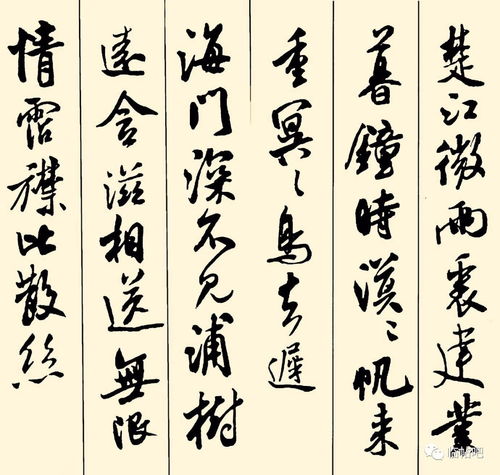 楚江微雨裏建業
暮鐘時漠〻帆来
重冥〻鳥去遲
海門深不見浦樹
遠含滋相送無限
情霑襟比散絲